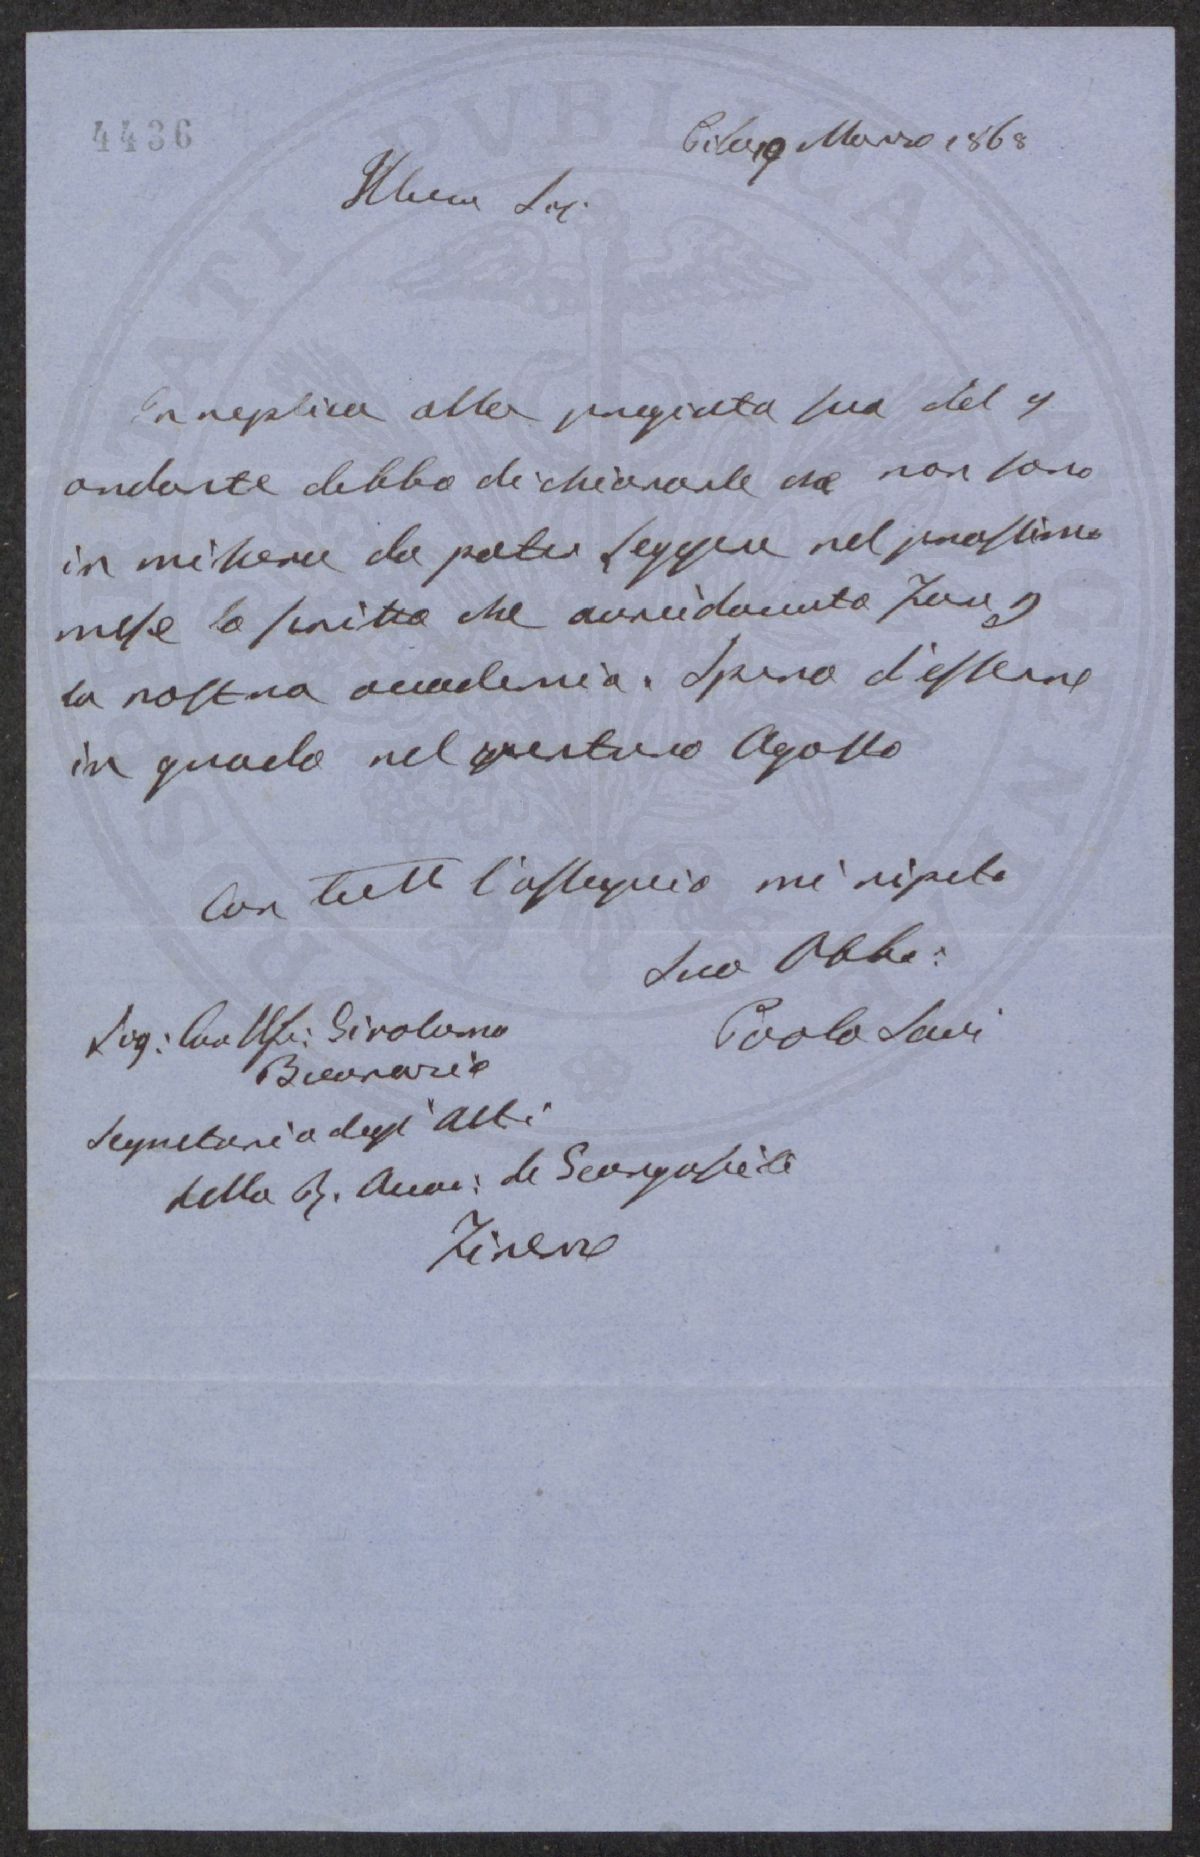 4436
Pisa 9 Marzo 1868
Illmo Sig.
In replica alla pregiata sua del 4
andante debbo dichiararle che non sono
in misura da poter leggere nel prossimo
mese lo scritto che
la nostra accademia. Spero d'esserne
in grado nel venturo Agosto
Con tutt l'ossequio mi ripeto
Suo Obbo:
Paolo Savi
Sig: Cav Uffi: Girolamo
Segretario degl' Atti
della R. Accad: de Georgofili
Firenze
PVBLICAE